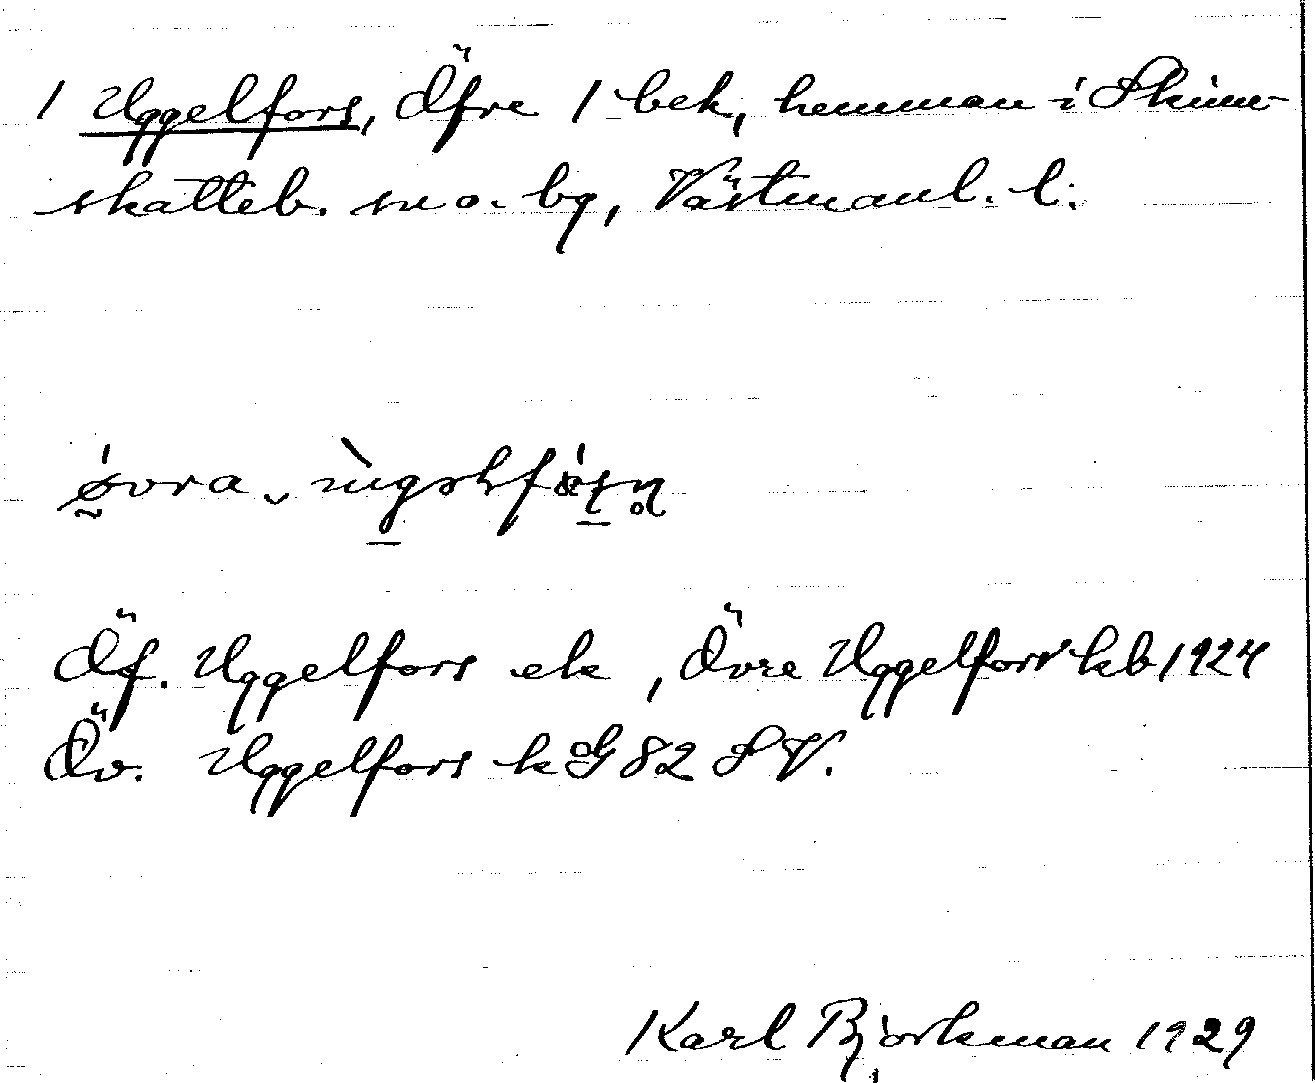 1 Uggelfors, Öfre 1 bek, hemman i Skinn-
skatteb. sn o. bg, Västmanl. l.
Öf. Uggelfors ek, Övre Uggelfors kb 1924
Öv. Uggelfors kG 82 SV.
Karl Björkman 1929